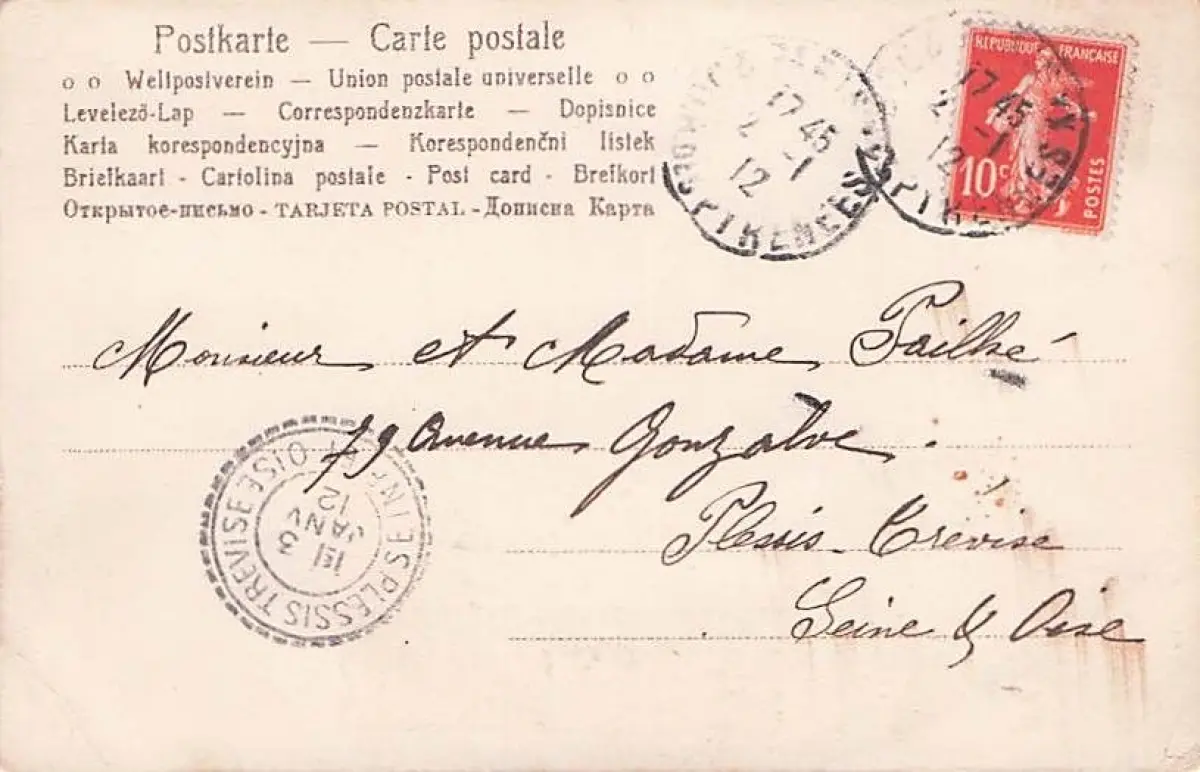 Postkarte — Carte postale
o o Weltpostverein — Union postale universelle o o
Levelező-Lap — Correspondenzkarte — Dopisnice
Karta korespondencyjna — Korespondenční lístek
Briefkaart - Cartolina postale - Post card - Brefkort
Открытое-письмо - TARJETA POSTAL - Дописна Карта
17 45
2 -1
12
PYRENEES
17 45
2 -1
12
REPUBLIQUE FRANÇAISE
10 c
POSTES
Monsieur et Madame Failhé
79 Avenue Gonzalve.
Plessis-Trévise
Seine & Oise
PLESSIS TREVISE
SEINE
OISE
3
JANV
12